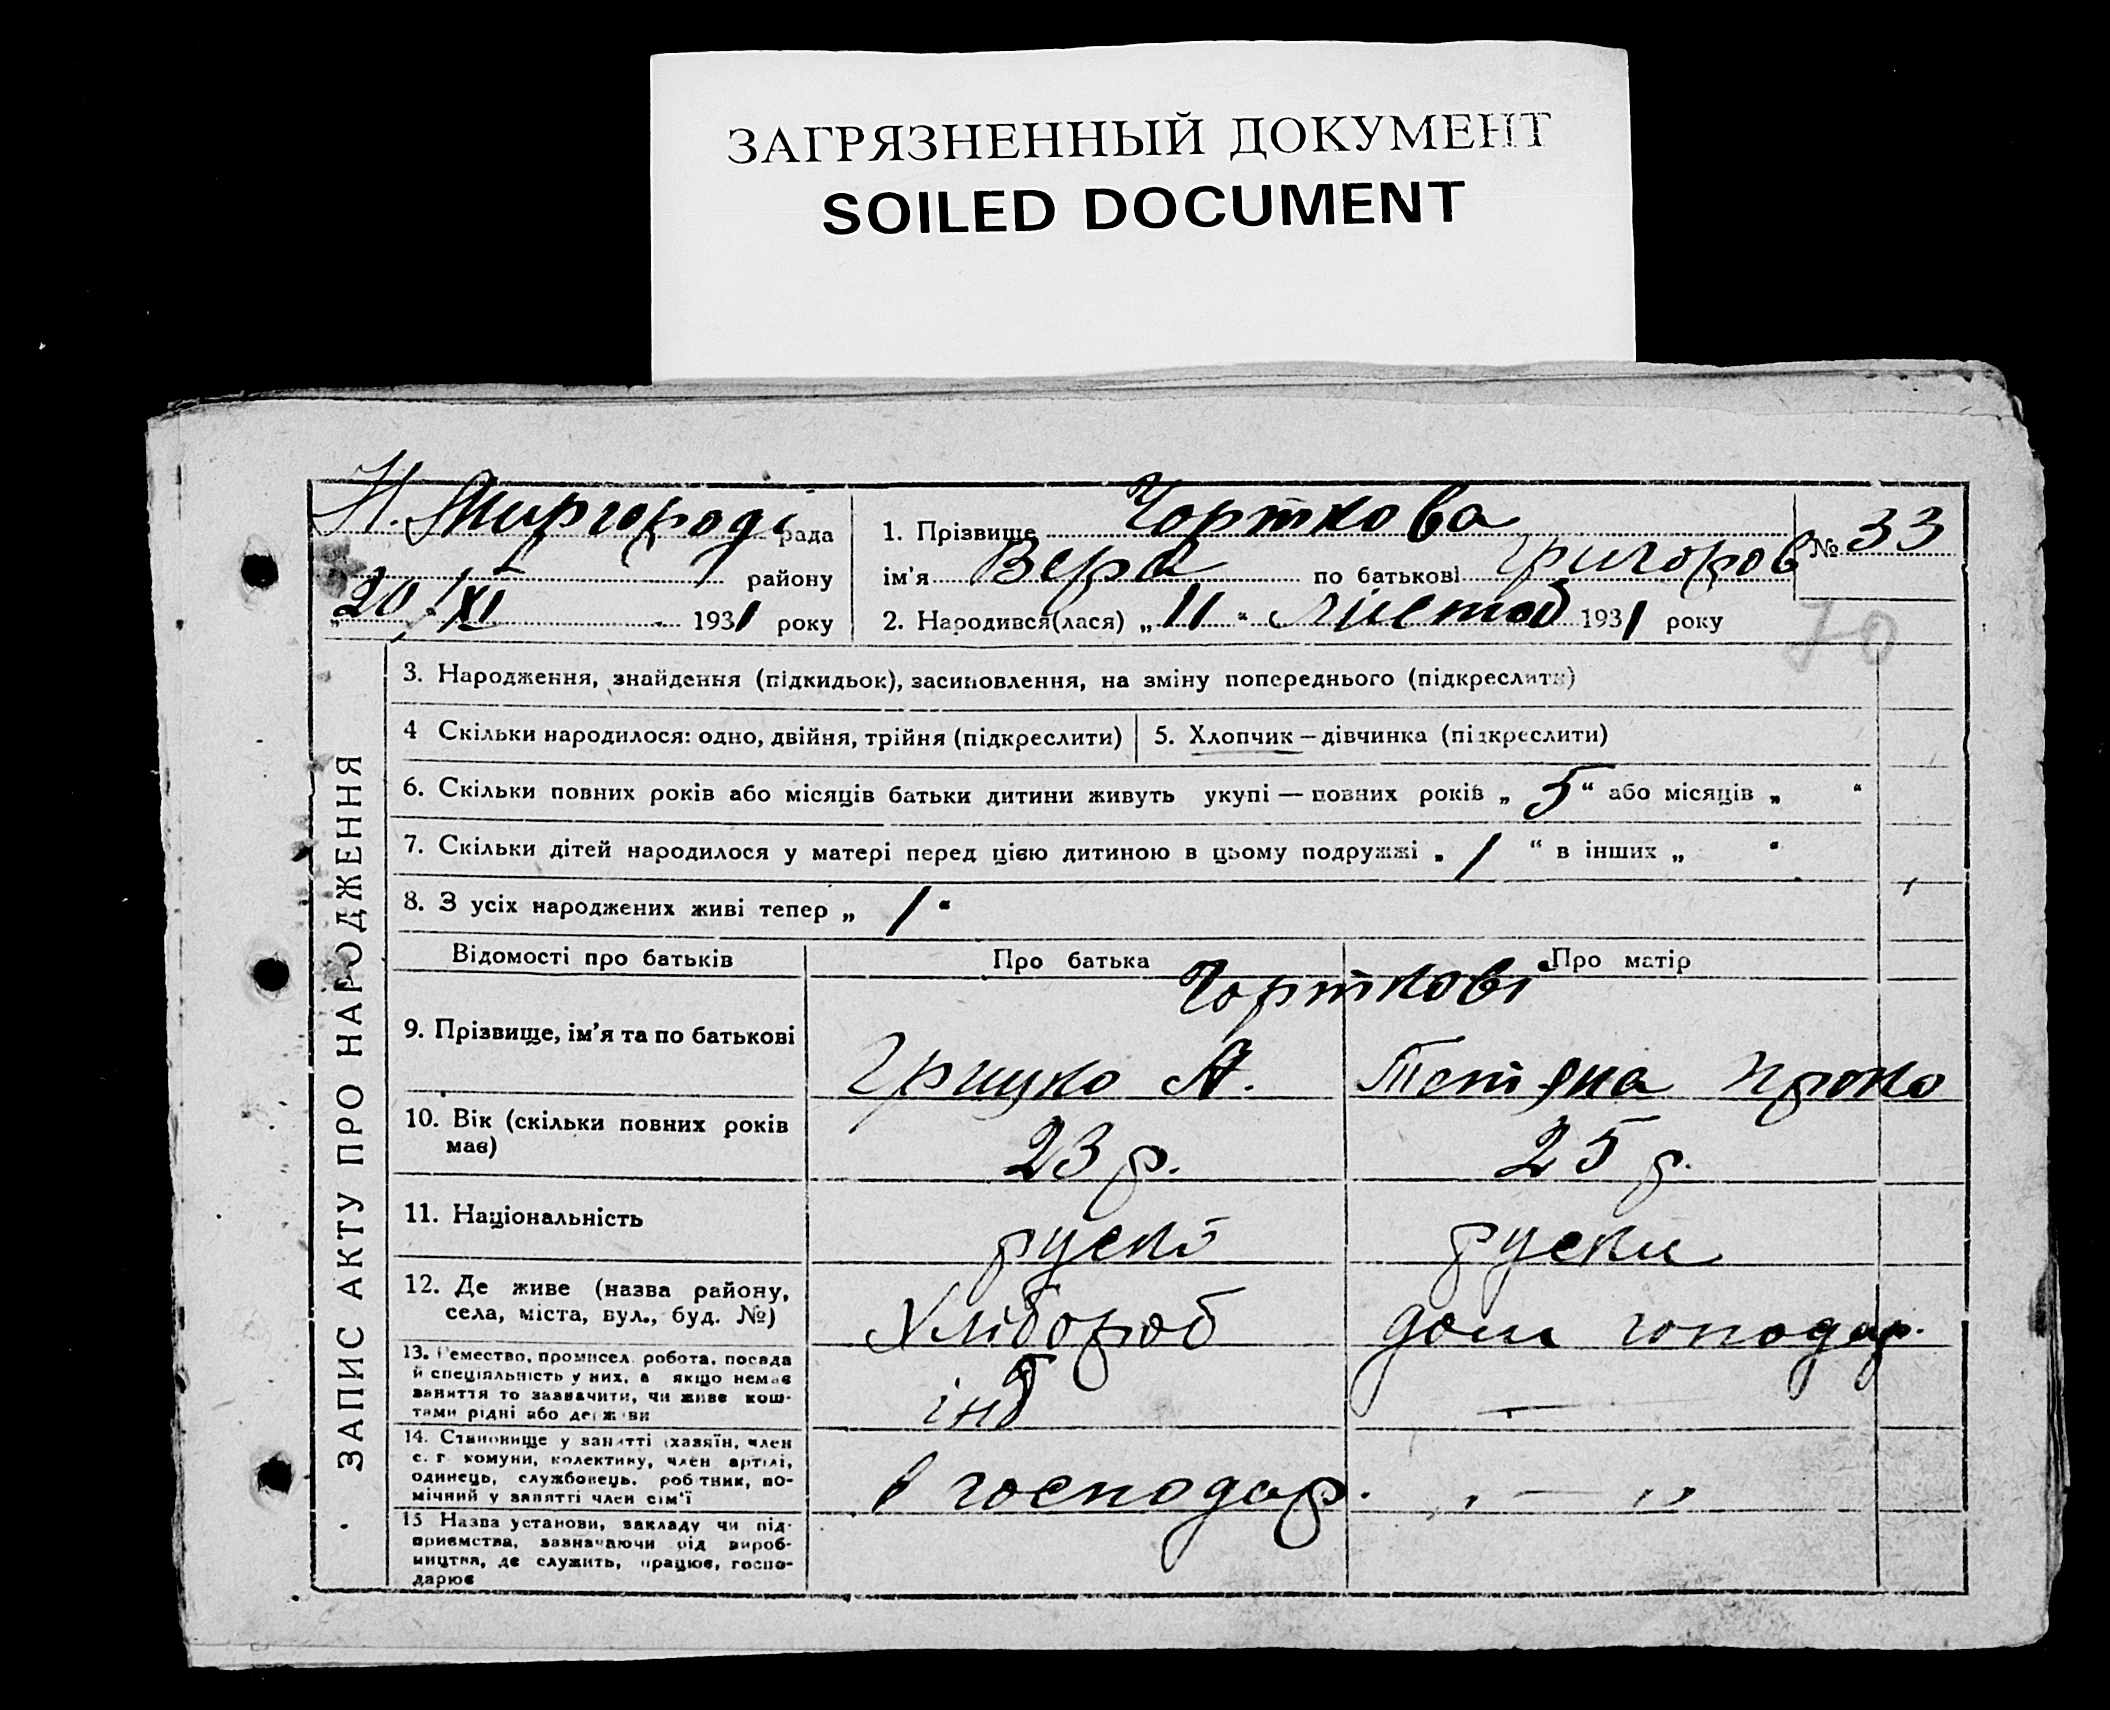 ЗАГРЯЗНЕННЫЙ ДОКУМЕНТ
SOILED DOCUMENT
Н. Миргороді рада
району
„20/XI 1931 року
1. Прізвище Чорткова
ім'я Вера по батькові Григоров
№ 33
2. Народився(лася) „11“ Листоб 1931 року
70
ЗАПИС АКТУ ПРО НАРОДЖЕННЯ
3. Народження, знайдення (підкидьок), засиновлення, на зміну попереднього (підкреслити)
4 Скільки народилося: одно, двійня, трійня (підкреслити)
5. Хлопчик — дівчинка (підкреслити)
6. Скільки повних років або місяців батьки дитини живуть укупі — повних років „5“ або місяців „ “
7. Скільки дітей народилося у матері перед цією дитиною в цьому подружжі „1“ в інших „ “
8. З усіх народжених живі тепер „1“
Відомості про батьків Про батька Про матір
Чорткові
9. Прізвище, ім'я та по батькові Грицко А. Тетяна Проко
10. Вік (скільки повних років має) 23 р. 25 р.
11. Національність руски руски
12. Де живе (назва району,
села, міста, вул., буд. №) Хлібороб дом господар.
13. Ремество, промисел, робота, посада
й спеціяльність у них, а якщо немає
заняття то зазначити, чи живе кош-
тами рідні або держави інд —
14. Становище у занятті (хазяїн, член
с. г. комуни, колективу, член артілі,
одинець, службовець, робітник, по-
мічний у занятті член сім'ї в господар. „ — „
15 Назва установи, закладу чи під-
приємства, зазначаючи рід вироб-
ництва, де служить, працює, госпо-
дарює